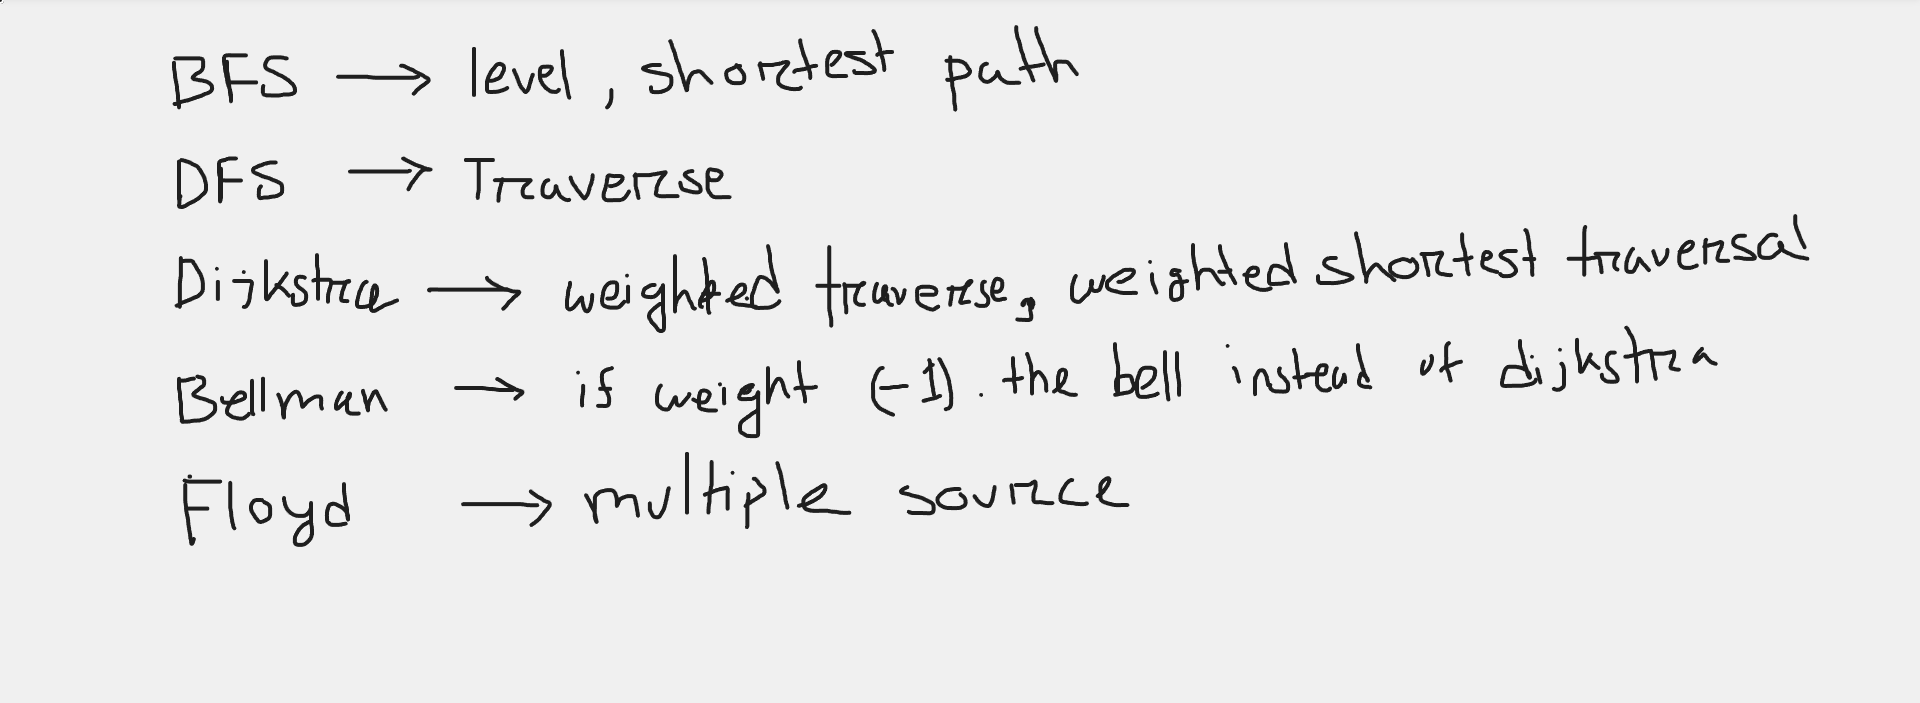 BFS → level, shortest path
DFS → Traverse
Dijkstra → weighted traverse, weighted shortest traversal
Bellman → if weight (-1). the bell instead of dijkstra
Floyd → multiple source